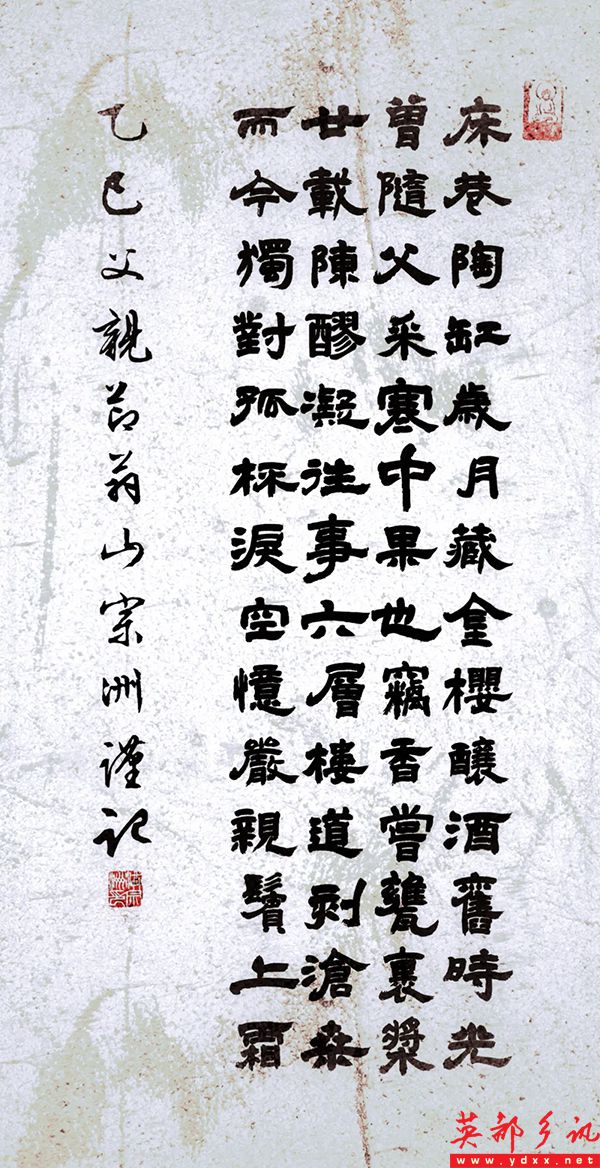 床巷陶缸歲月藏金櫻釀酒舊時光
曾隨父采寒中果也竊香嘗甕裏漿
廿載陳醪凝往事六層樓道刻滄桑
而今獨對孤杯淚空憶嚴親鬢上霜
乙巳父親節翁山宗洲謹記
英都乡讯
www.ydxx.net